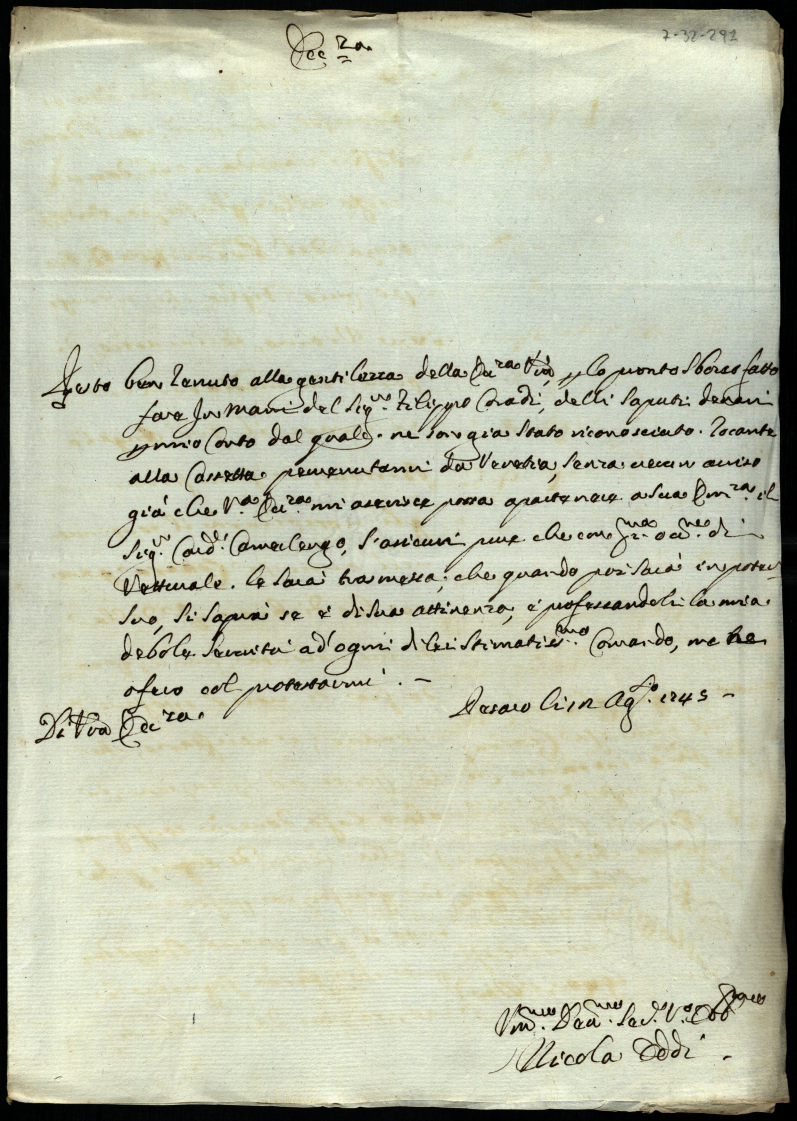 7-32-292
Ecc.za
Resto ben tenuto alla gentilezza della Ecc.za Vra, p lo pronto sborso fatto
fare in mani del Sig.re Filippo Coradi, delli saputi denari
p mio conto dal quale ne son già stato riconosciuto. Tocante
alla cassetta pervenutami da Venetia, senza verun aviso
già che V.a Ecc.za mi aserisce possa apartenere a sua Em.za il
Sig.r Card.l Camerlengo, s'asicuri pure che con p.ma occ.ne di
Vetturale le sarà trasmessa, che quando poi sarà in poter
suo, si saprà se è di sua attinenza, e professandoli la mia
debole servitù ad'ogni di lei stimatiss.mo comando, me le
ofero col protestarmi. –
Di Vra Ecc.za
Pesaro li 12 Ag.to 1745 –
Vm.mo Dev.mo Ser.e V.o Obb.mo
Nicola Oddi –